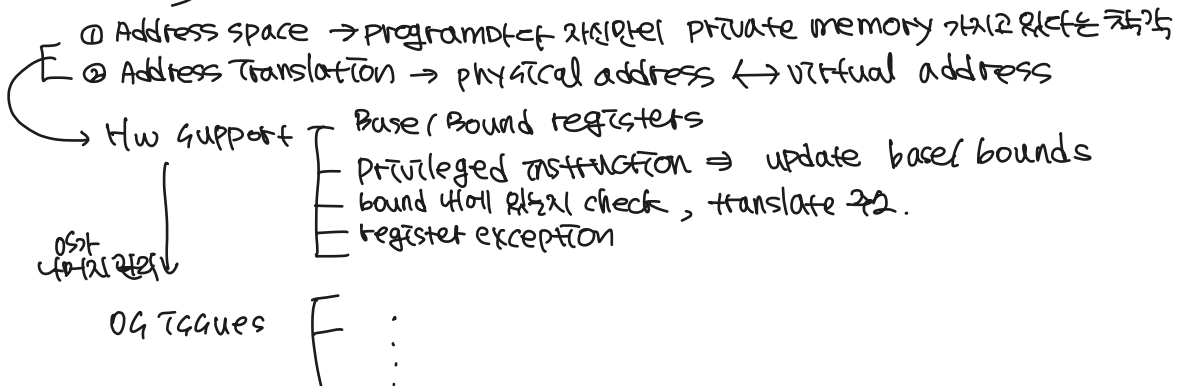 ① Address space → program마다 자신만의 private memory 가지고 있다는 착각
② Address Translation → physical address ↔ virtual address
→ HW support
Base/Bound registers
privileged instruction ⇒ update base/bounds
bound 내에 있는지 check, translate 주소.
register exception
OS가
나머지 관리
OS Issues